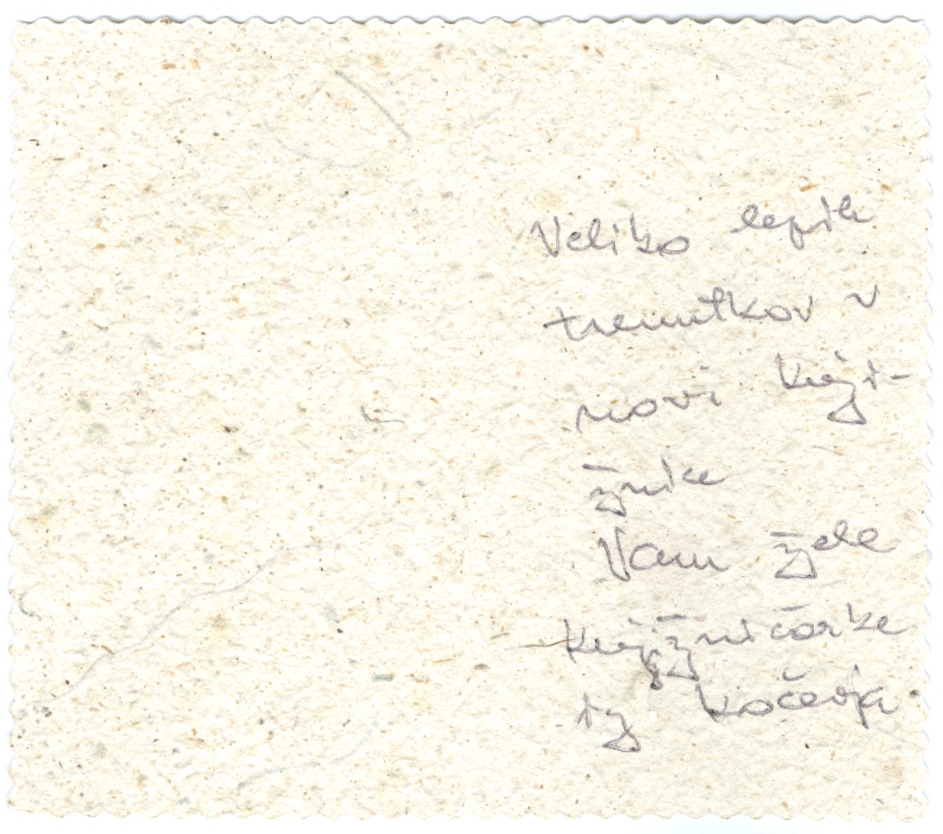 Veliko lepih
trenutkov v
novi knji-
žnice
Vam žele
knjižničarke
iz Kočevja